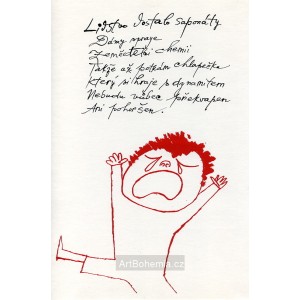 Lidstvo dostalo saponáty
Dámy spraye
Zemědělství chemii
Takže až potkám chlapečka
který si hraje s dynamitem
Nebudu vůbec překvapen
Ani pohoršen.
© ArtBohemia.cz